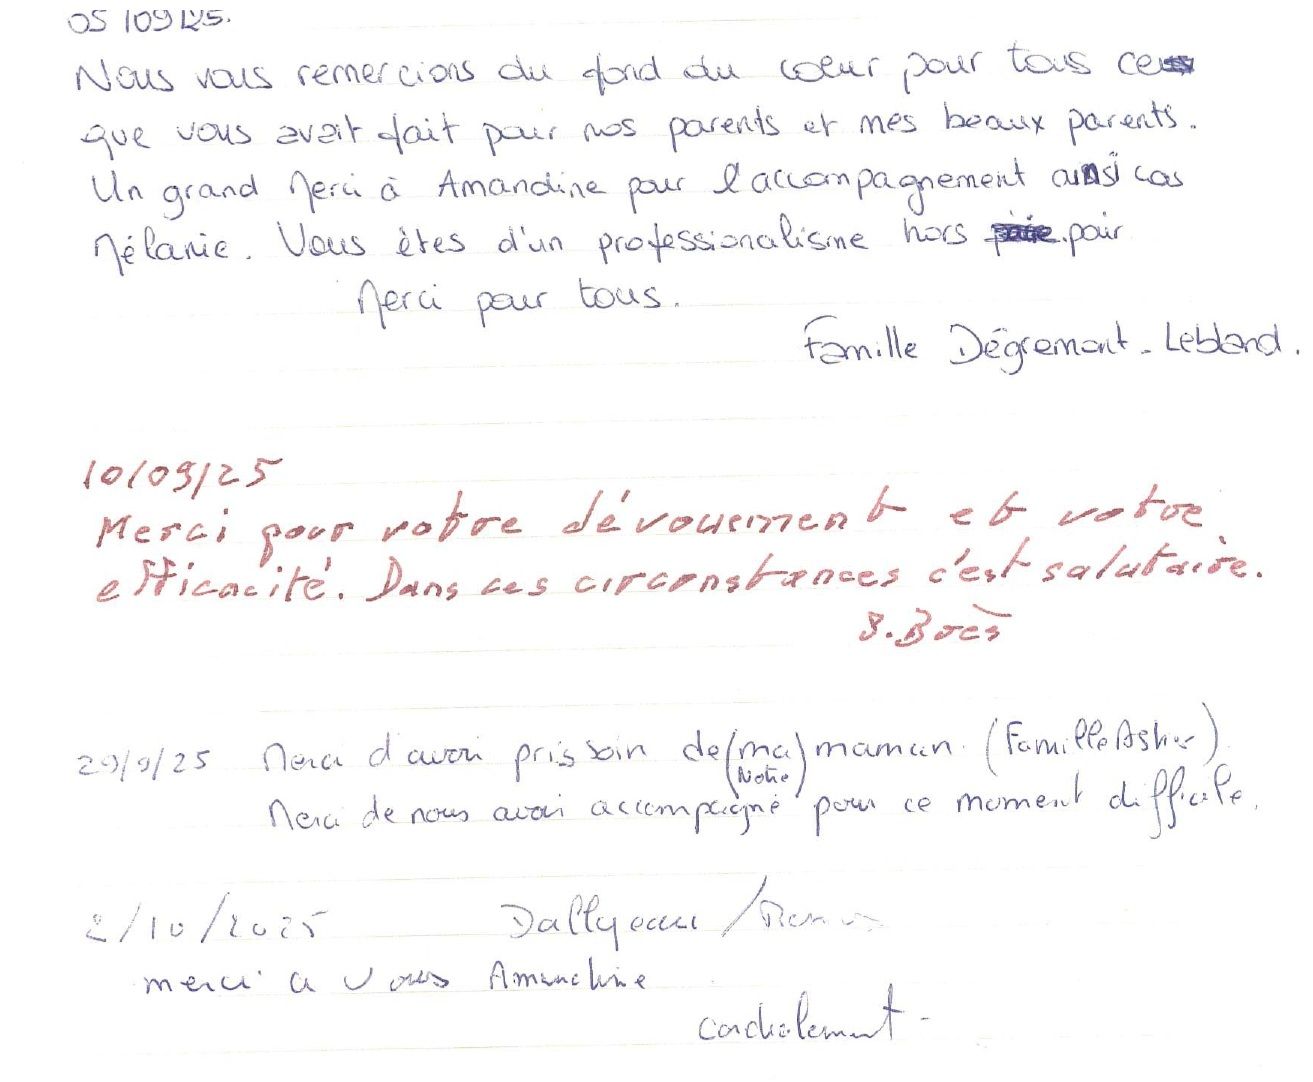 05/09/25.
Nous vous remercions du fond du coeur pour tous ce
que vous avait fait pour nos parents et mes beaux parents.
Un grand Merci à Amandine pour l'accompagnement ainsi
Mélanie. Vous êtes d'un professionalisme hors pair
Merci pour tous.
Famille Dégremont - Lebland.
10/09/25
Merci pour votre dévouement et votre
efficacité. Dans ces circonstances c'est salutaire.
29/9/25 Merci d'avoir pris soin de (ma) maman. (Famille
(Notre)
Merci de nous avoir accompagné pour ce moment difficile.
2/10/2025
merci a vous Amandine
cordialement -